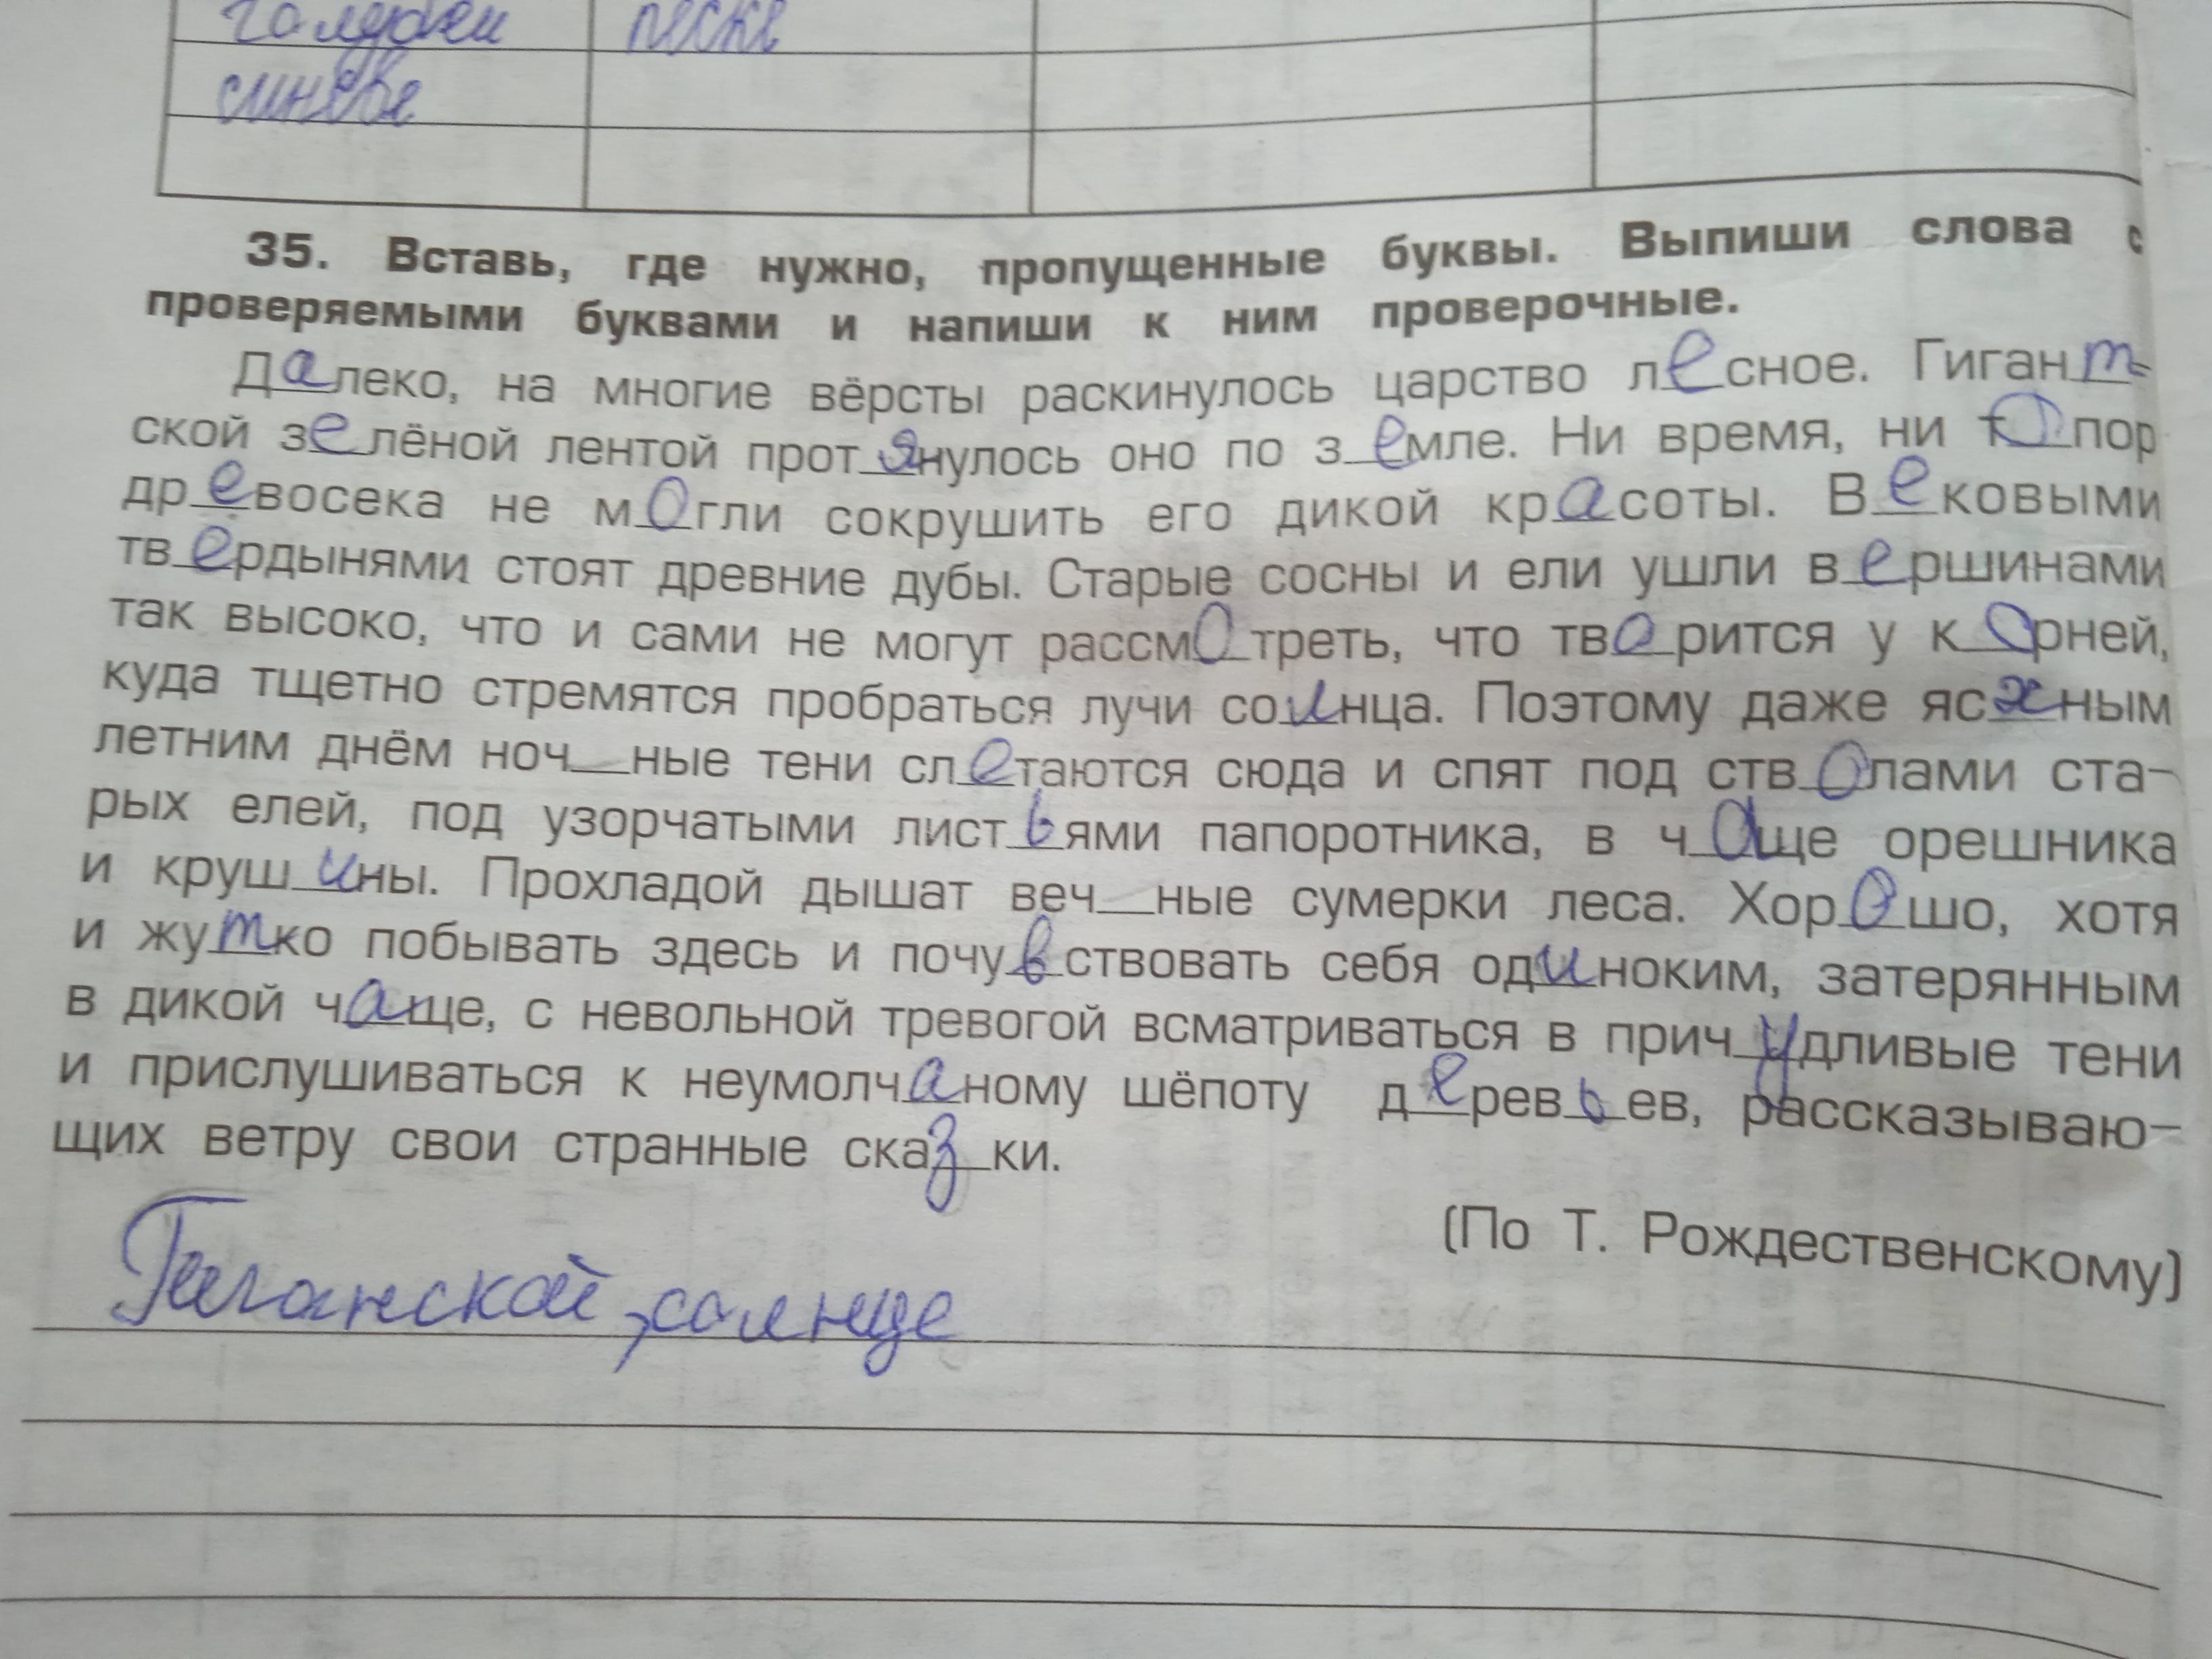 голубей песке
синеве
35. Вставь, где нужно, пропущенные буквы. Выпиши слова с
проверяемыми буквами и напиши к ним проверочные.
Далеко, на многие вёрсты раскинулось царство лесное. Гигант-
ской зелёной лентой протянулось оно по земле. Ни время, ни топор
древосека не могли сокрушить его дикой красоты. Вековыми
твердынями стоят древние дубы. Старые сосны и ели ушли вершинами
так высоко, что и сами не могут рассмотреть, что творится у корней,
куда тщетно стремятся пробраться лучи солнца. Поэтому даже яс_ным
летним днём ноч_ные тени слетаются сюда и спят под стволами ста-
рых елей, под узорчатыми листьями папоротника, в чаще орешника
и крушины. Прохладой дышат веч_ные сумерки леса. Хорошо, хотя
и жутко побывать здесь и почувствовать себя одиноким, затерянным
в дикой чаще, с невольной тревогой всматриваться в причудливые тени
и прислушиваться к неумолчаному шёпоту деревьев, рассказываю-
щих ветру свои странные сказки.
(По Т. Рождественскому)
Гиганской, солнце